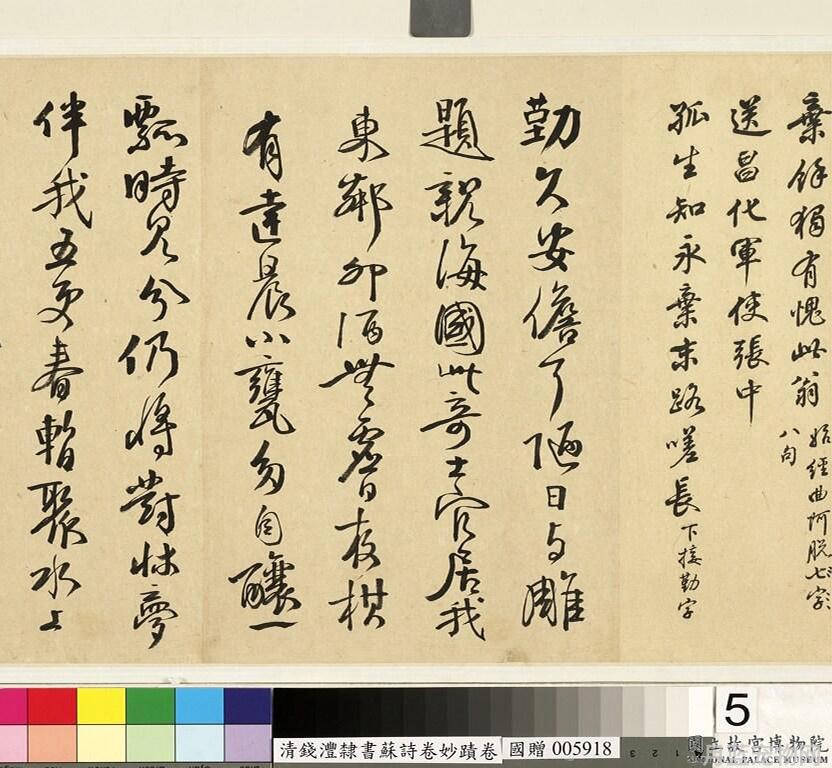 棄餘獨有愧此翁
始經曲阿脫七字
八句
送昌化軍使張中
孤生知永棄末路嗟長下接勤字
勤久安儋耳陋日与雕
題親海國此奇士官居我
東鄰卯酒無虛日夜棋
有達晨小甕多自釀一
瓢時見分仍將對牀夢
伴我五更春暫聚水上
5
清錢灃隸書蘇詩卷妙蹟卷 國贈 005918
國立故宮博物院
NATIONAL PALACE MUSEUM